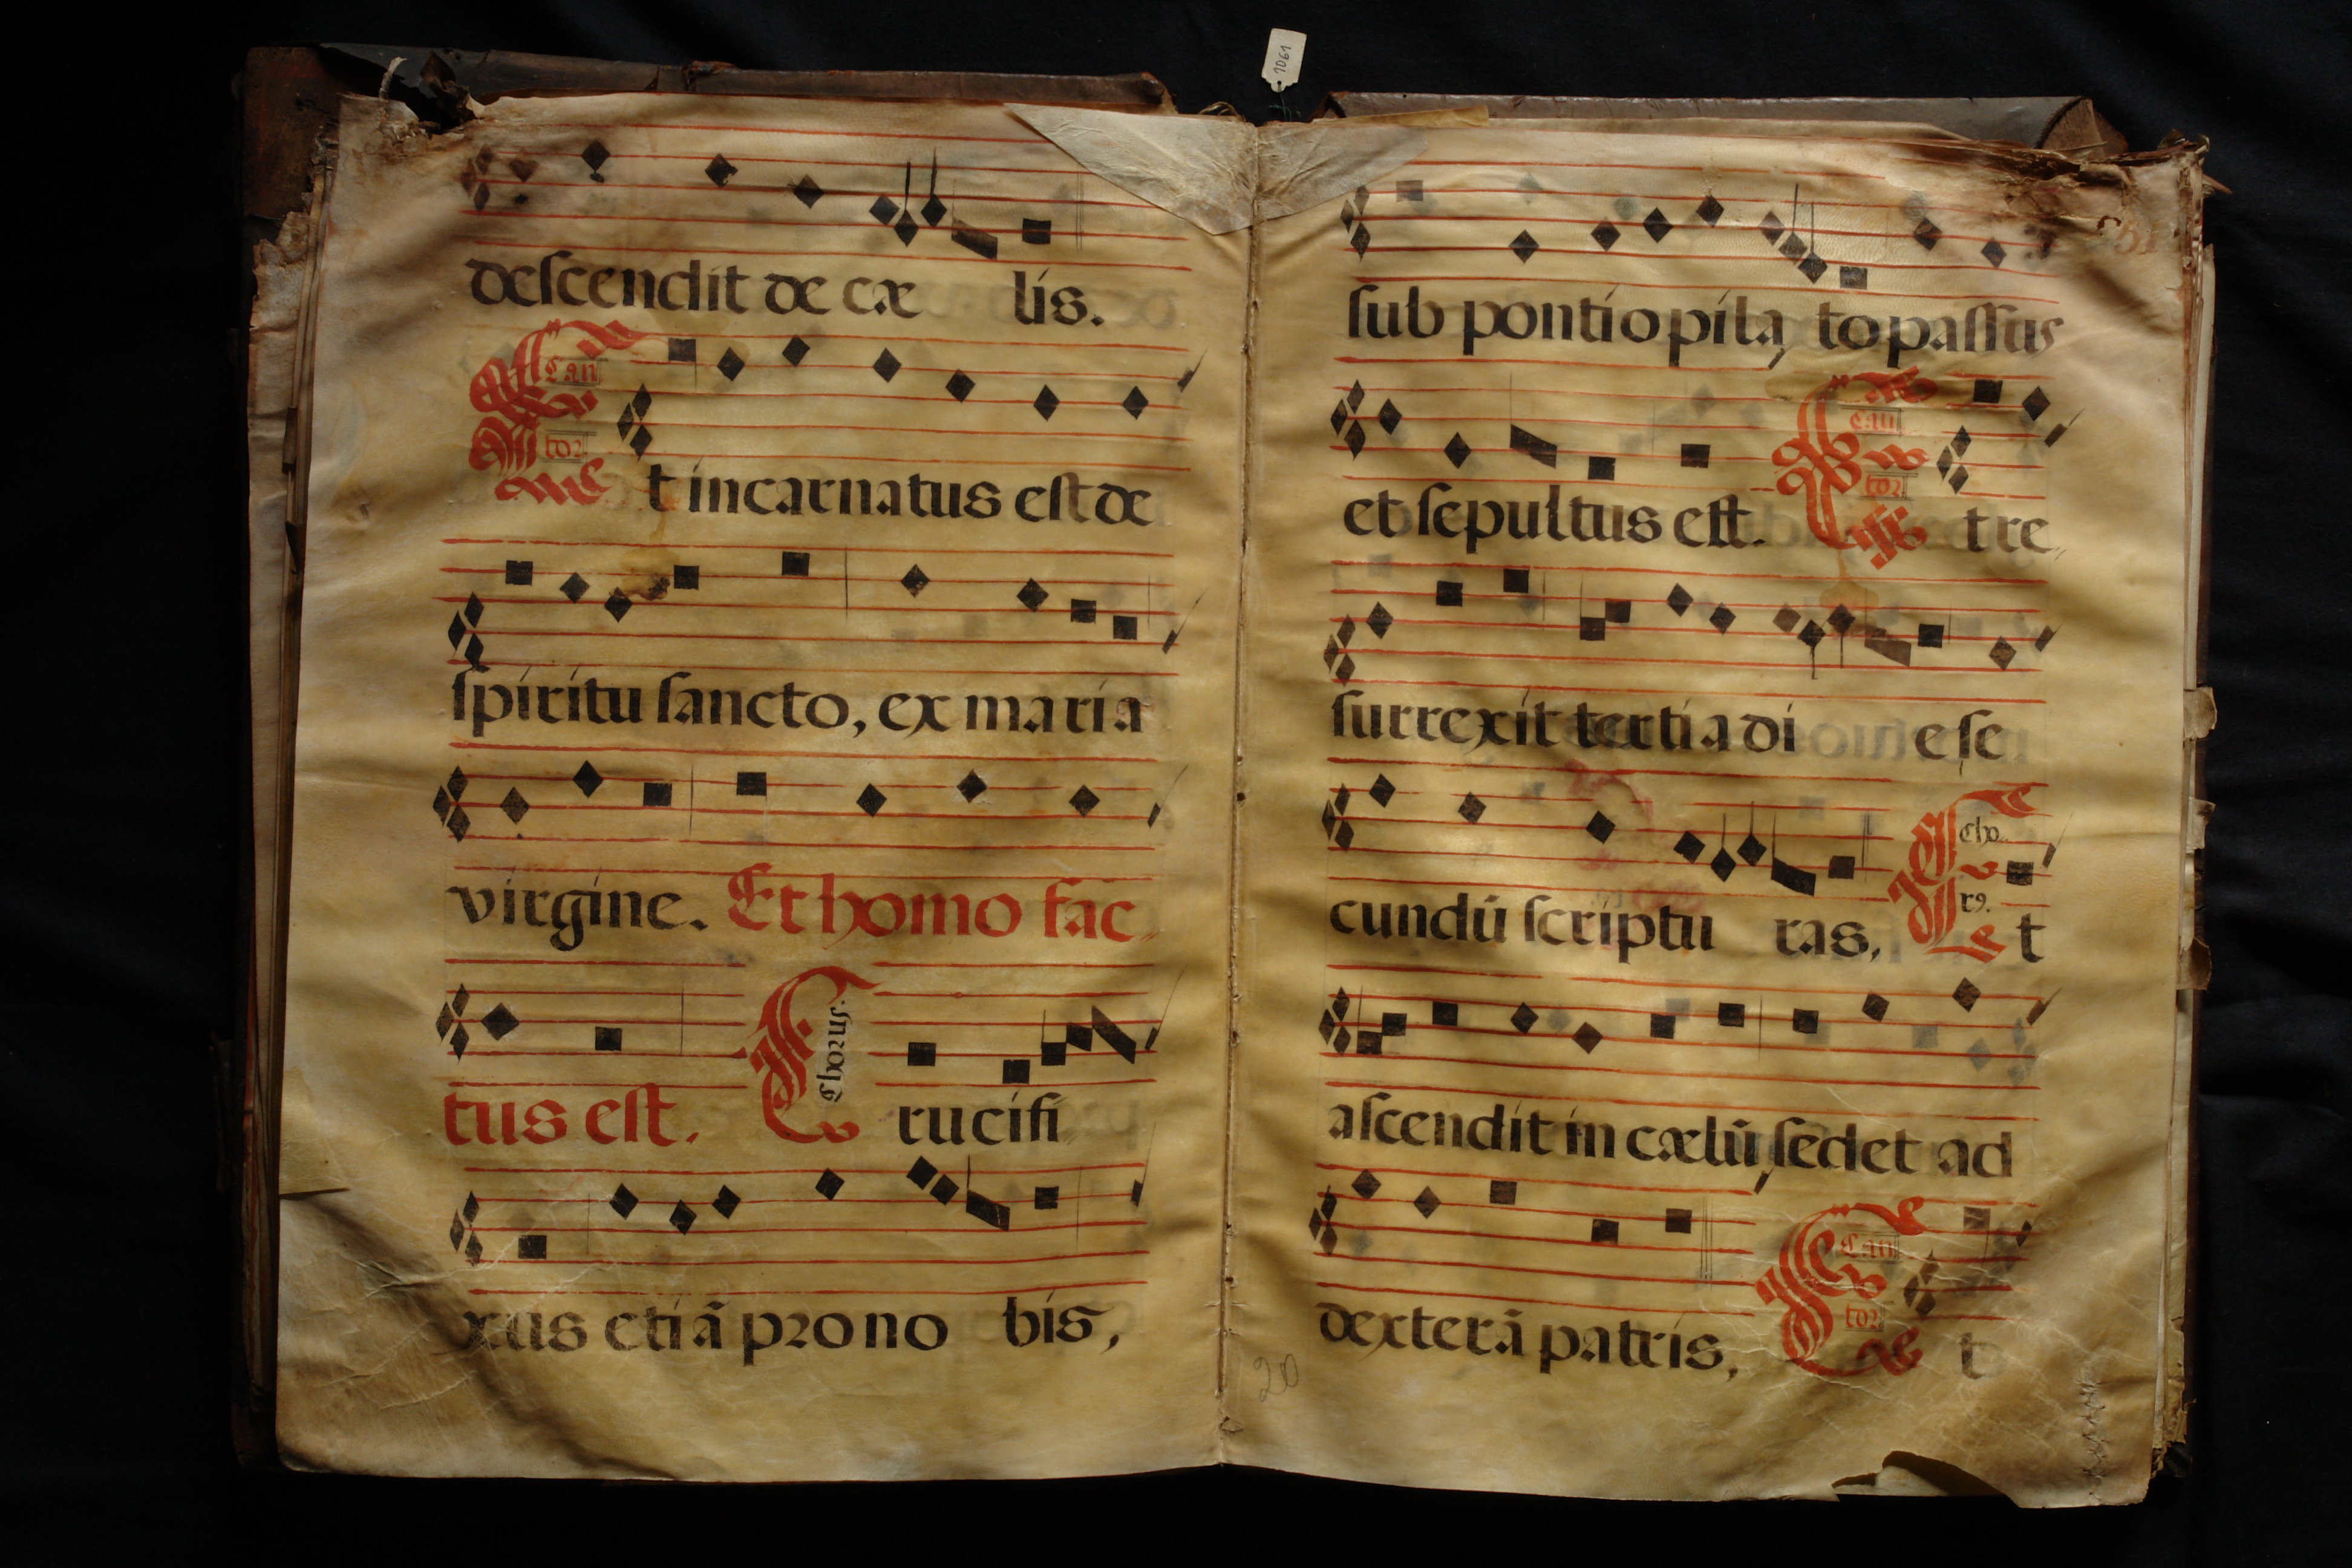 1061
descendit de cæ lis.
Can
tor
Et incarnatus est de
spiritu sancto, ex maria
virgine. Et homo fac
tus est. Crucifi
Chorus.
xus etiã pro no bis,
sub pontio pila to passus
et sepultus est. Et re
Can
tor
surrexit tertia di e se
cundũ scriptu ras, Et
Cho
r9.
ascendit in cælũ, sedet ad
dexterã patris, Et
Can
tor
20